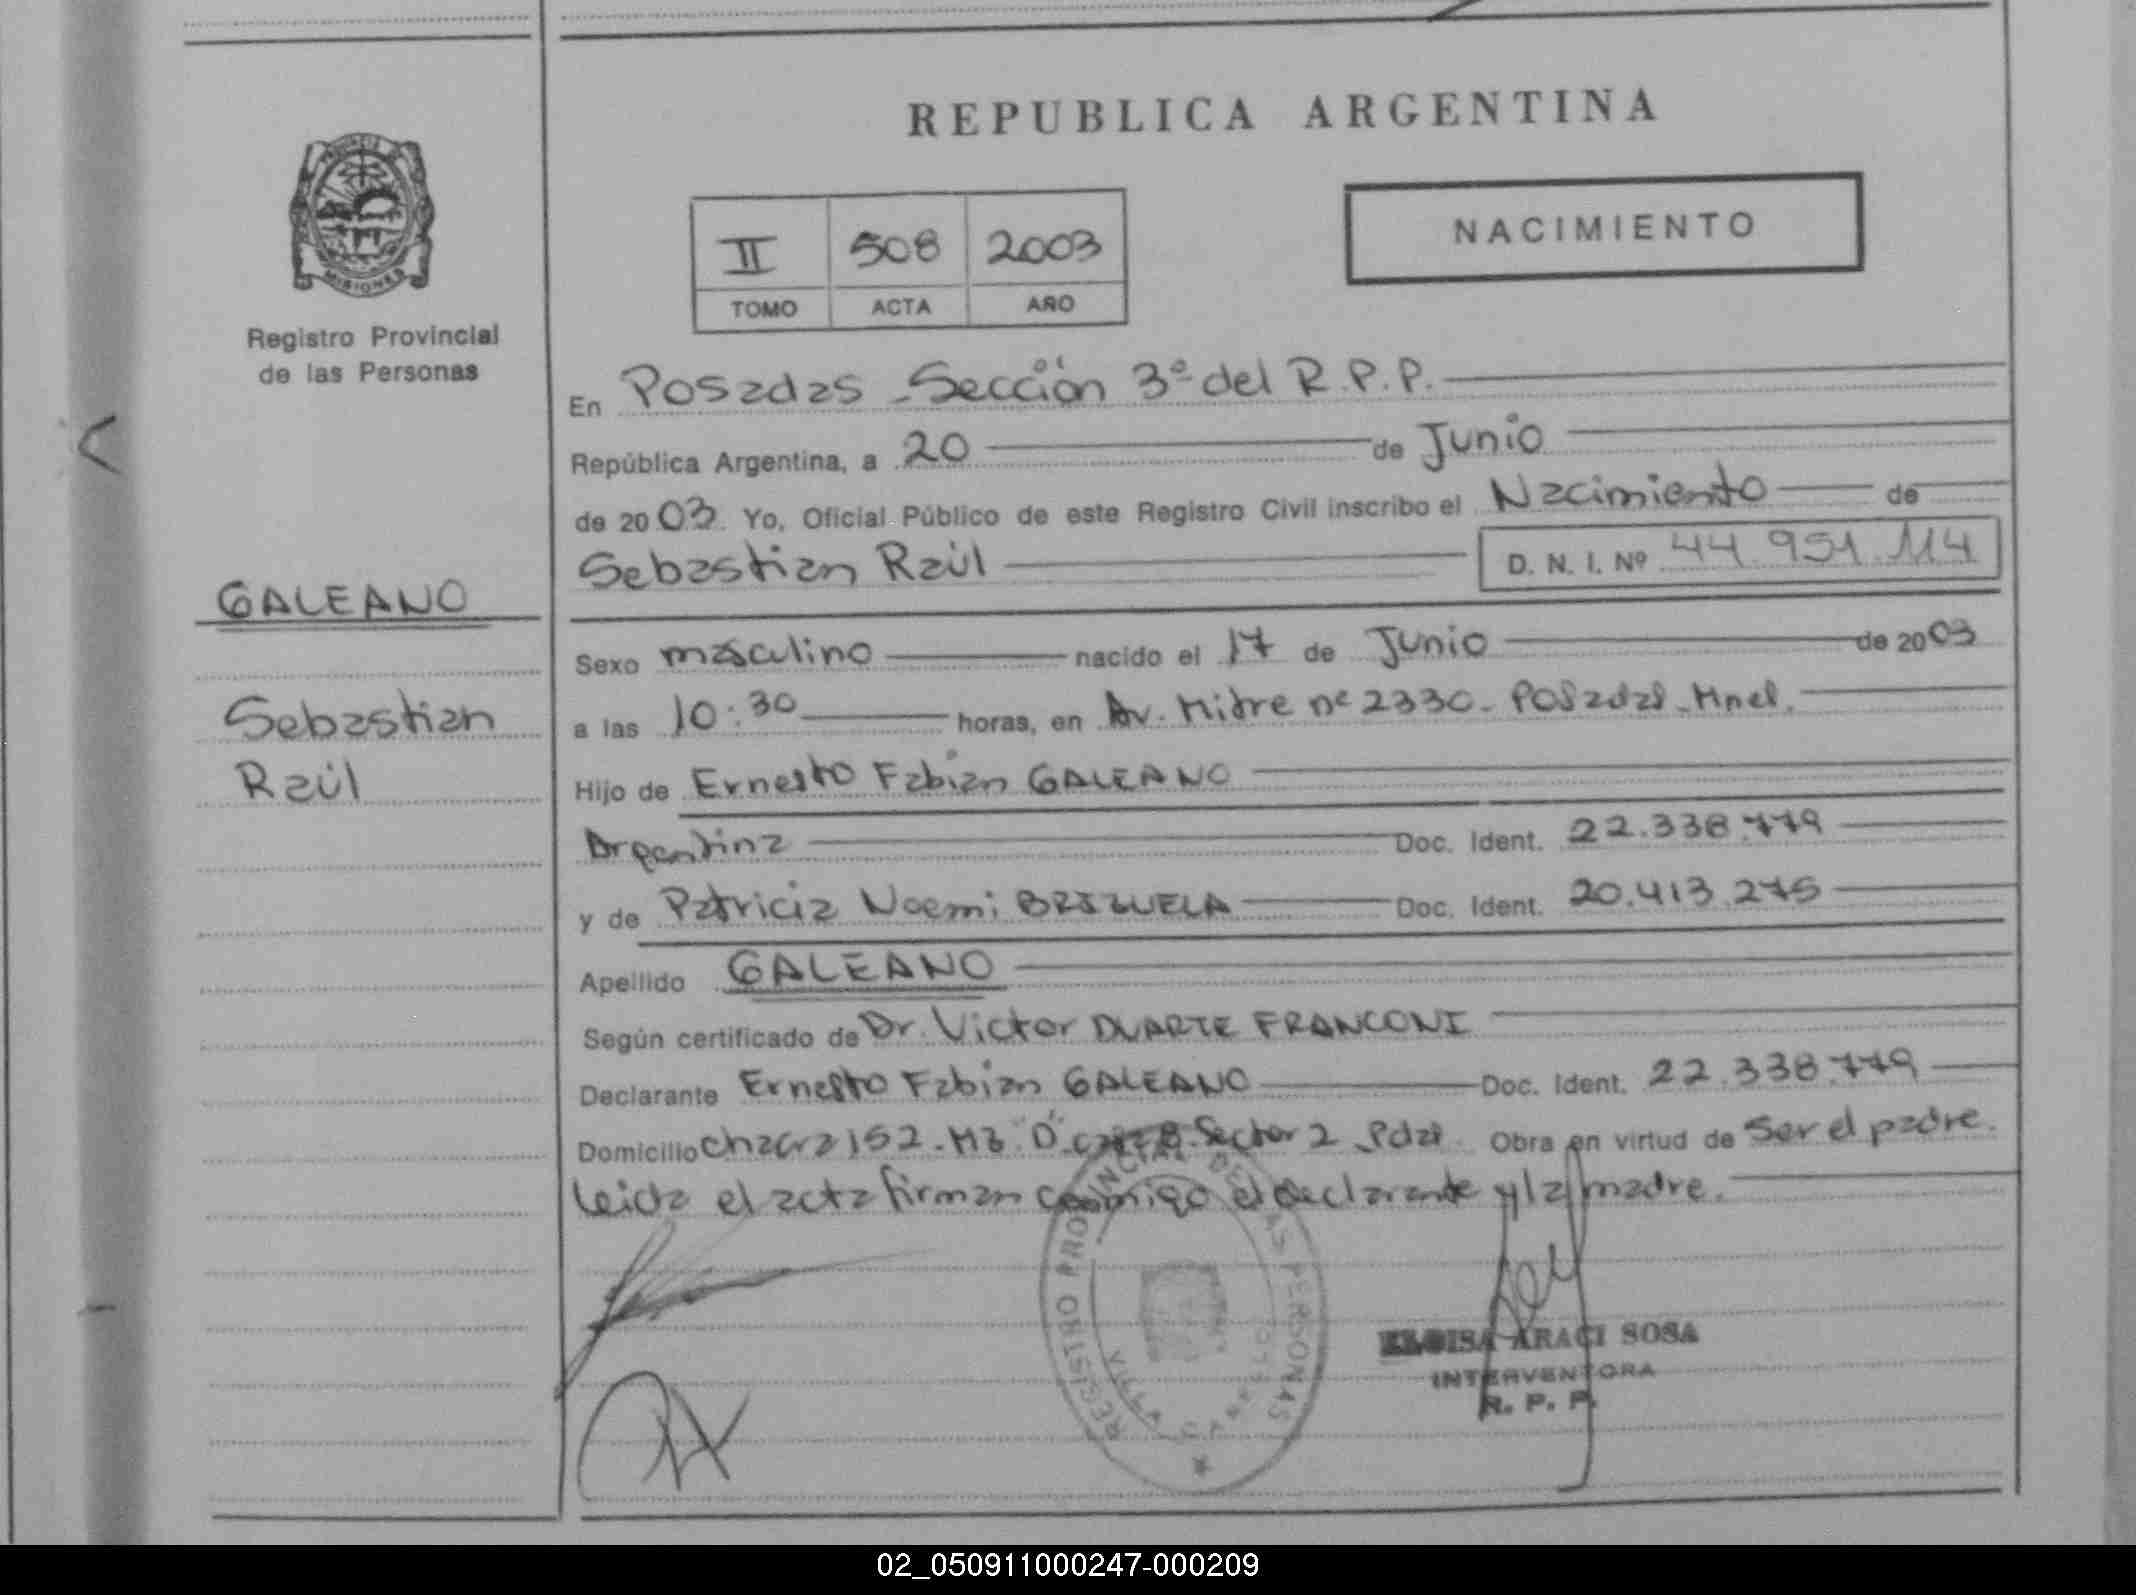 REPUBLICA ARGENTINA
NACIMIENTO
II 508 2003
TOMO ACTA AÑO
MISIONES
Registro Provincial
de las Personas
En Posadas - Sección 3º del R.P.P.
República Argentina, a 20 de Junio
de 2003 Yo, Oficial Público de este Registro Civil inscribo el Nacimiento de
Sebastian Raúl D. N. I. Nº 44.951.114
GALEANO
Sebastian
Raúl
Sexo masculino nacido el 17 de Junio de 2003
a las 10:30 horas, en Av. Mitre nº 2330 - Posadas - Mnes.
Hijo de Ernesto Fabián GALEANO
Argentina Doc. Ident. 22.338.779
y de Patricia Noemi BRIZUELA Doc. Ident. 20.413.275
Apellido GALEANO
Según certificado de Dr. Victor DUARTE FRANCONI
Declarante Ernesto Fabián GALEANO Doc. Ident. 22.338.779
Domicilio Chacra 152 - Mz "D" Sector 2 Pdas. Obra en virtud de Ser el padre.
Leida el acta firman conmigo el declarante y la madre.
REGISTRO PROVINCIAL DE LAS PERSONAS
ELOISA ARACI SOSA
INTERVENTORA
R. P. P.
02_050911000247-000209